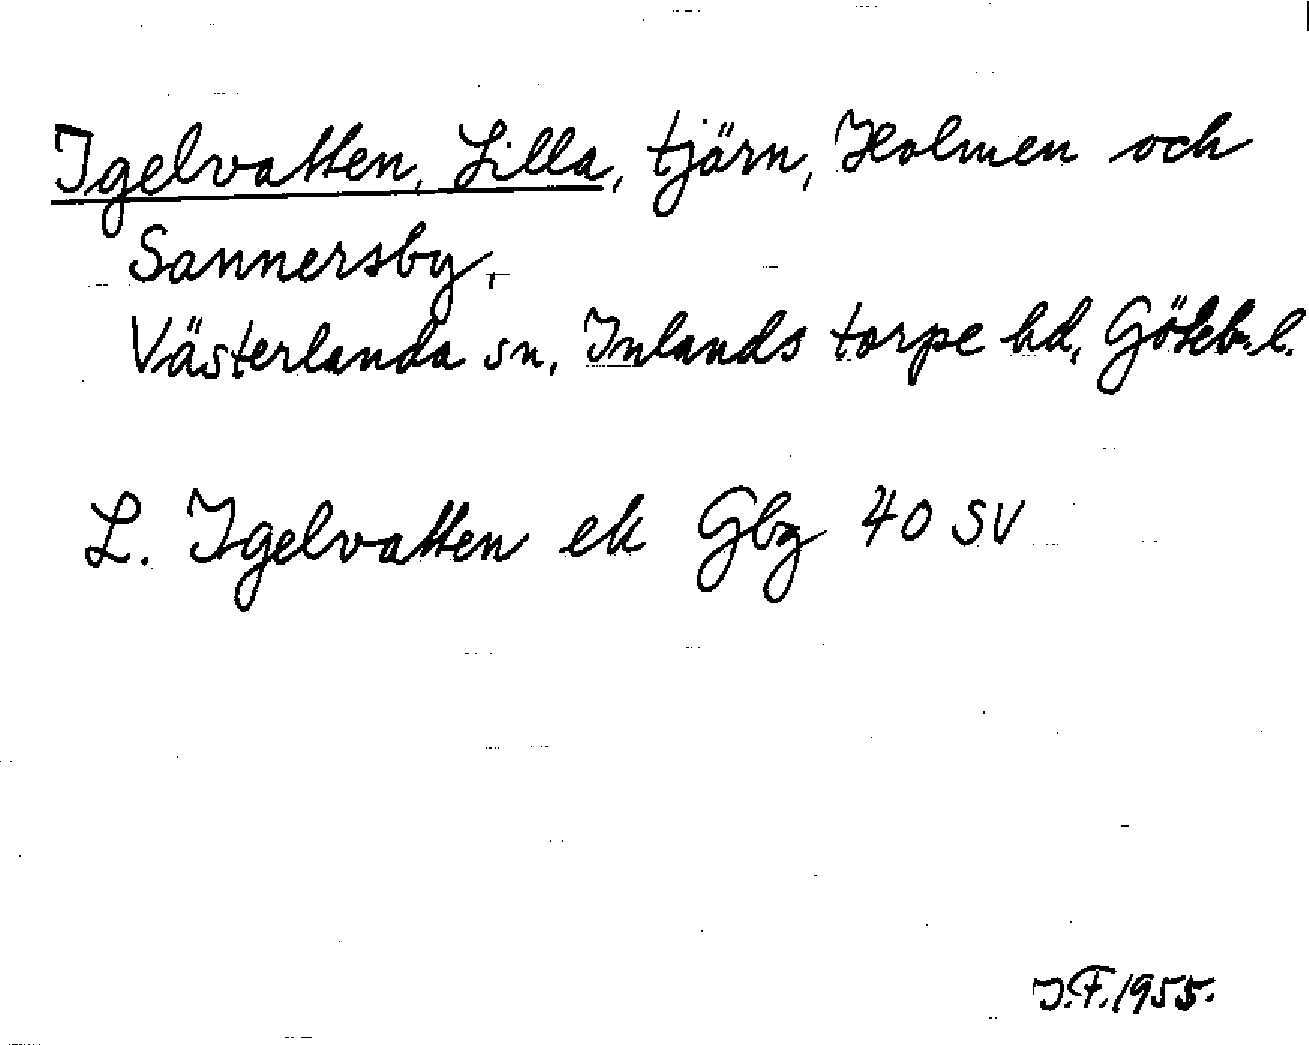 Igelvatten, Lilla, tjärn, Holmen och
Sannersby,
Västerlanda sn, Inlands torpe hd, Göteb. l.
L. Igelvatten ek Gbg 40 SV
I.F. 1955.